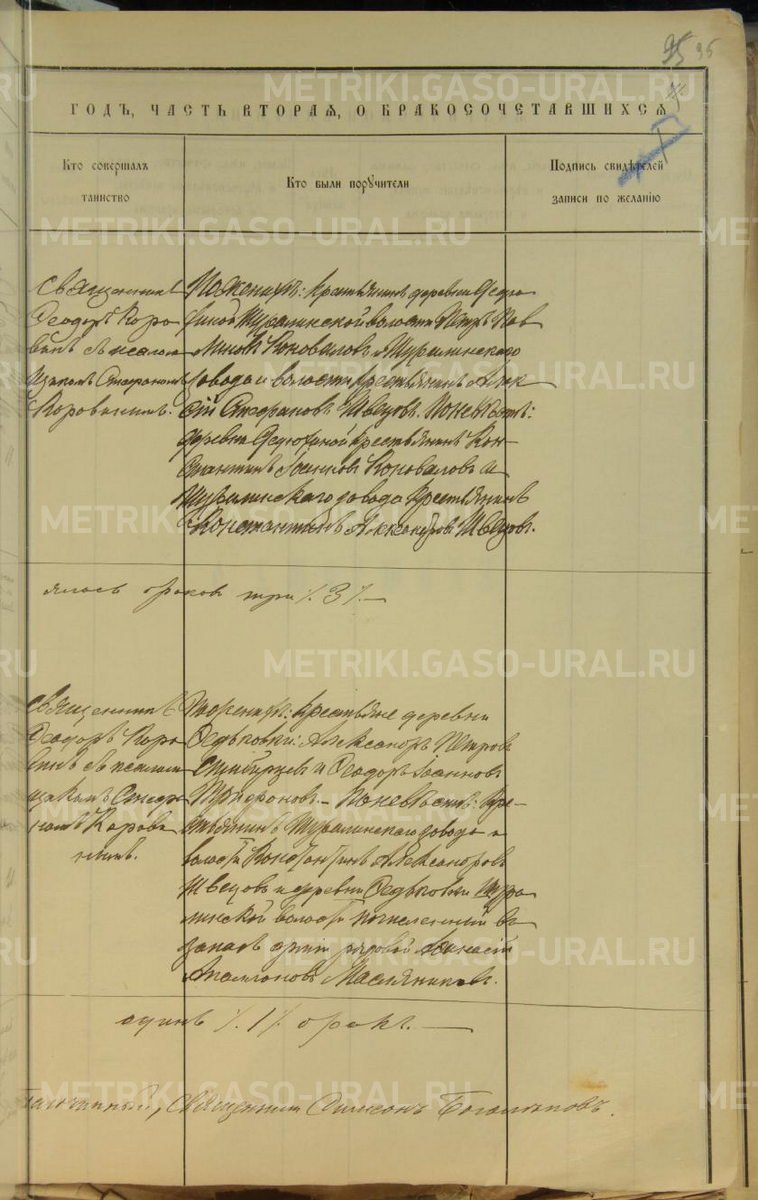 95 95
ГОДЪ, ЧАСТЬ ВТОРАЯ, О БРАКОСОЧЕТАВШИХСЯ
Кто совершалъ
таинство
Кто были поручители
Подпись свидѣтелей
записи по желанію
Священникъ
Ѳеодоръ Коро
винъ съ псалом
щикомъ Стефаномъ
Коровинымъ.
По женихѣ: крестьянинъ деревни Федю
Шуралинской волости Петръ Пав
Коноваловъ и Шуралинскаго
завода и волости крестьянинъ Алек
сѣй Стефановъ Швецовъ. По невѣстѣ:
деревни Федюниной крестьянинъ Кон
стантинъ Іоанновъ Коноваловъ и
Шуралинскаго завода крестьянинъ
Константинъ Александровъ Швецовъ.
ялось браковъ три /. 3 /. —
Священникъ
Ѳеодоръ Коро
винъ съ псалом
щикомъ Стефа
номъ Корови
нымъ.
По женихѣ: крестьяне деревни
Федьковки: Александръ Петровъ
и Ѳеодоръ Іоанновъ
Трифоновъ. — По невѣстѣ: кре
стьянинъ Шуралинскаго завода и
волости Константинъ Александровъ
Швецовъ и деревни Федьковки Шура
линской волости въ
запасъ арміи рядовой Аѳанасій
Масленниковъ.
одинъ /. 1 /. бракъ. —
Благочинный, Священникъ Симеонъ
METRIKI.GASO-URAL.RU